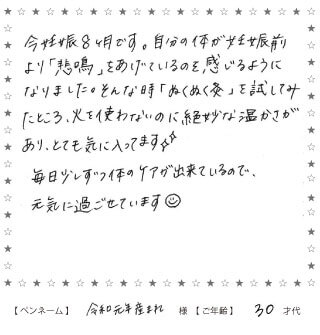 今妊娠8ヶ月です。自分の体が妊娠前
より「悲鳴」をあげているのを感じるように
なりました。そんな時「ぬくぬく灸」を試してみ
たところ、火を使わないのに絶妙な温かさが
あり、とても気に入ってます✨
毎日少しずつ体のケアが出来ているので、
元気に過ごせています☺
【ペンネーム】 令和元年産まれ 様 【ご年齢】 30 才代